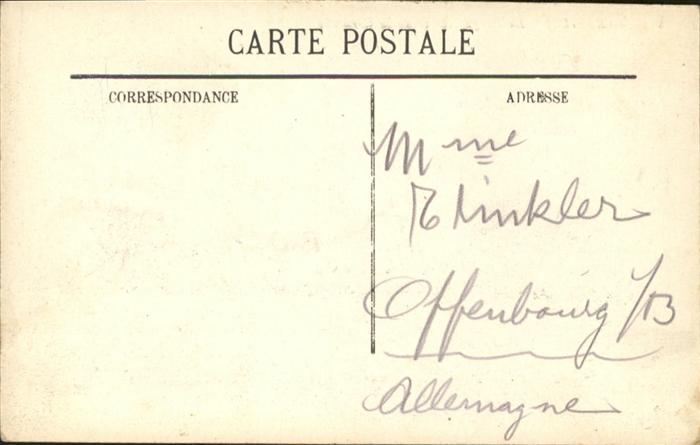 CARTE POSTALE
CORRESPONDANCE
ADRESSE
Mme
Klinkler
Offenbourg /B
Allemagne